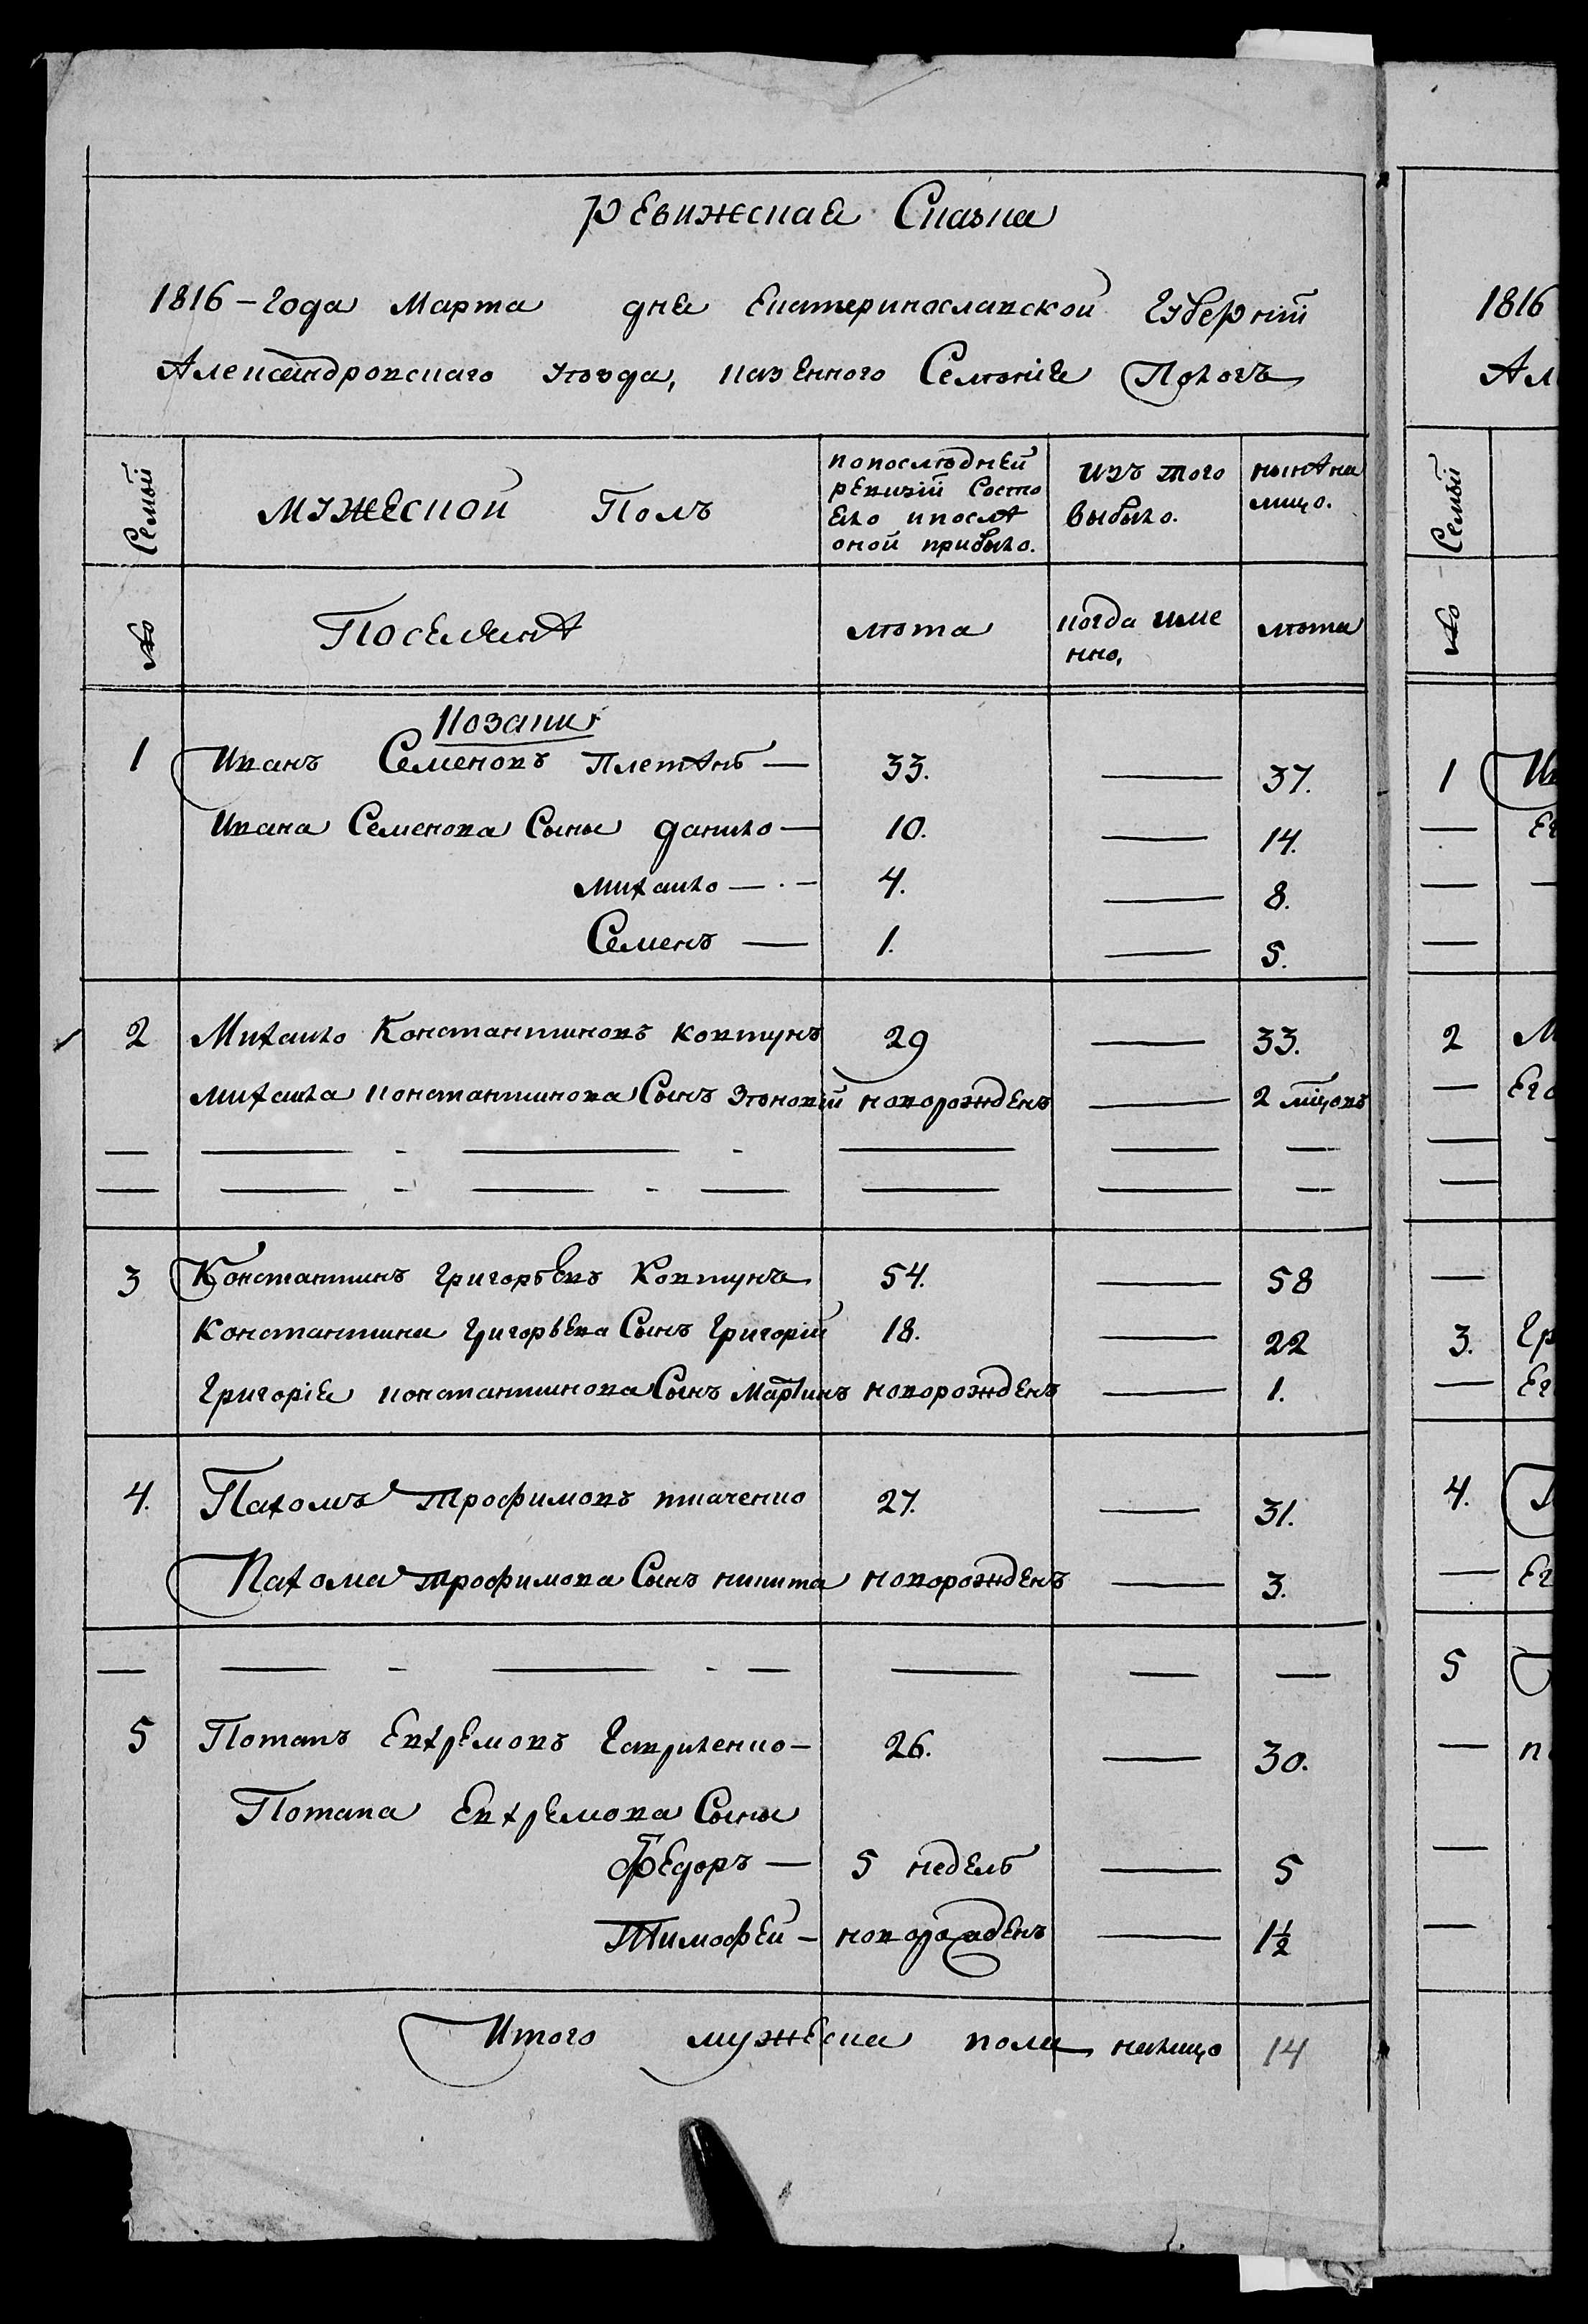 ревижская Сказка
1816 – Года Марта дня Екатеринославской Губерніи
Александровскаго уезда, казенного Селенія Пологъ
Семьи
мужеской Полъ
попоследней
ревизіи состо
яло ипосля
оной прибыло.
изъ того
выбыло.
нынѣ на
лицо.
№
Поселянѣ
лѣта
когда име
нно,
лѣта
Козаки
1 Иванъ Семеновъ Плетѣнь — 33. — 37.
Ивана Семенова Сыны данило — 10. — 14.
михаило — . — 4. — 8.
Семенъ — 1. — 5.
2 Михаило Константиновъ ковтунъ 29 — 33.
михаила константинова Сынъ новорожденъ — 2 мцовъ
— — - — - — — —
— — - — - — — — —
3 Константинъ григорьевъ Ковтунъ 54. — 58
константина григорьева Сынъ григорій 18. — 22
григорія константинова Сынъ Мартинъ новорожденъ — 1.
4. Пахомъ трофимовъ ткаченко 27. — 31.
Пахома трофимова Сынъ никита новорожденъ — 3.
— — - — - — — — —
5 Потапъ Евхремовъ Гавриленко – 26. — 30.
Потапа Евхремова Сыны
Федоръ — 5 недель — 5
Тимофей – новорожденъ — 1½
Итого мужеска пола налицо 14
1816
Ал
Семьи
№
1 Ив
— Ег
— —
—
2 М
— Его
— -
—
—
3. Гр
— Ег
4. П
— Ег
5
— п
—
—